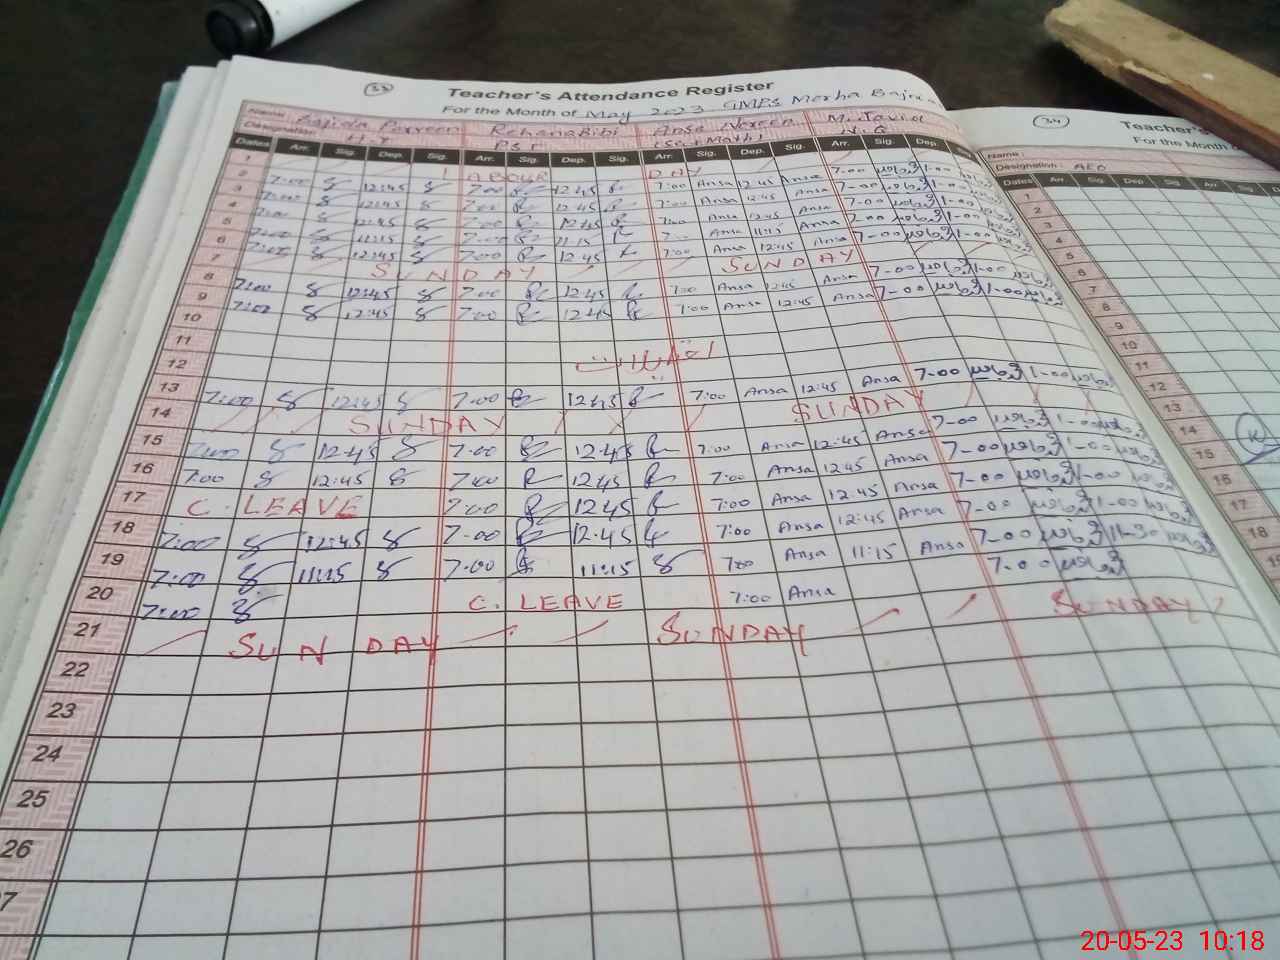 33
Teacher's Attendance Register
For the Month of May 2023 GMPS Merha Bajwa
Name: Sajida Parveen Rehana Bibi Ansa Noreen M. Javid
Designation: H T P S T (Sect Math) N. Q
Dates Arr. Sig. Dep. Sig. Arr. Sig. Dep. Sig. Arr. Sig. Dep. Sig. Arr. Sig. Dep. Sig
1 LABOUR DAY
2 7:00 12:45 7:00 12:45 7:00 Ansa 12:45 Ansa 7-00 1-00
3 7:00 12:45 7:00 12:45 7:00 Ansa 12:45 Ansa 7-00 1-00
4 7:00 12:45 7:00 12:45 7:00 Ansa 12:45 Ansa 7-00 1-00
5 7:00 11:15 7:00 11:15 7:00 Ansa 11:15 Ansa 7-00 1-00
6 7:00 12:45 7:00 12:45 7:00 Ansa 12:45 Ansa 7-00 1-00
7 SUNDAY SUNDAY
8 7:00 12:45 7:00 12:45 7:00 Ansa 12:45 Ansa 7-00 1-00
9 7:00 12:45 7:00 12:45 7:00 Ansa 12:45 Ansa 7-00 1-00
10
11
12 تعطیلات
13 7:00 12:45 7:00 12:45 7:00 Ansa 12:45 Ansa 7-00 1-00
14 SUNDAY SUNDAY
15 7:00 12:45 7:00 12:45 7:00 Ansa 12:45 Ansa 7-00 1-00
16 7:00 12:45 7:00 12:45 7:00 Ansa 12:45 Ansa 7-00 1-00
17 C. LEAVE 7:00 12:45 7:00 Ansa 12:45 Ansa 7-00 1-00
18 7:00 12:45 7:00 12:45 7:00 Ansa 12:45 Ansa 7-00 1-00
19 7:00 11:15 7:00 11:15 7:00 Ansa 11:15 Ansa 7-00 11-30
20 7:00 C. LEAVE 7:00 Ansa 7-00
21 SUNDAY SUNDAY SUNDAY
22
23
24
25
26
34
Teacher's
For the Month
Name:
Designation: AEO
Dates Arr. Sig. Dep. Sig. Arr Sig
1
2
3
4
5
6
7
8
9
10
11
12
13
14
15
16
17
18
20-05-23 10:18